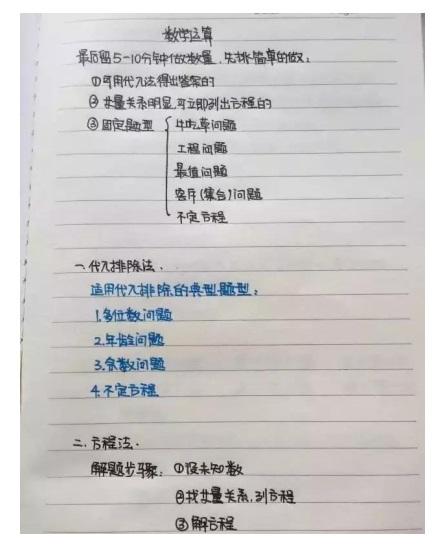 数学运算
最后留5-10分钟做数量,先挑简单的做:
①可用代入法得出答案的
②等量关系明显,可立即列出方程的
③固定题型 { 牛吃草问题
工程问题
最值问题
容斥(集合)问题
不定方程
一、代入排除法.
适用代入排除的典型题型:
1.多位数问题
2.年龄问题
3.余数问题
4.不定方程
二、方程法.
解题步骤: ①设未知数
②找等量关系,列方程
③解方程